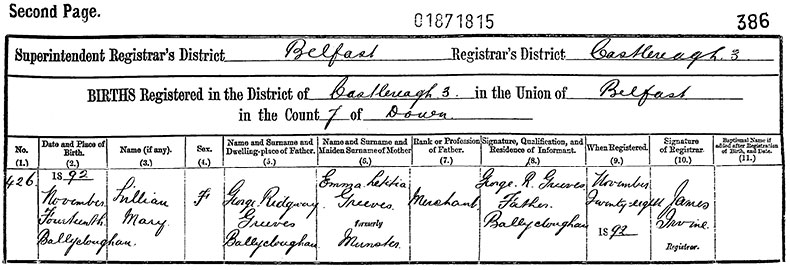 Second Page. 01871815 386
Superintendent Registrar's District Belfast Registrar's District Castlereagh 3
BIRTHS Registered in the District of Castlereagh 3. in the Union of Belfast
in the County of Down
No. (1.)
Date and Place of Birth. (2.)
Name (if any). (3.)
Sex. (4.)
Name and Surname and Dwelling-place of Father. (5.)
Name and Surname and Maiden Surname of Mother (6.)
Rank or Profession of Father. (7.)
Signature, Qualification, and Residence of Informant. (8.)
When Registered. (9.)
Signature of Registrar. (10.)
Baptismal Name if added after Registration of Birth, and Date. (11.)
426
1892
November
Fourteenth
Ballycloughan.
Lillian
Mary.
F
George Ridgway
Greeves
Ballycloughan
Emma Letitia
Greeves
formerly
Munster.
Merchant
George. R. Greeves
Father.
Ballycloughan
November
Twenty eighth
1892
James
Irvine.
Registrar.